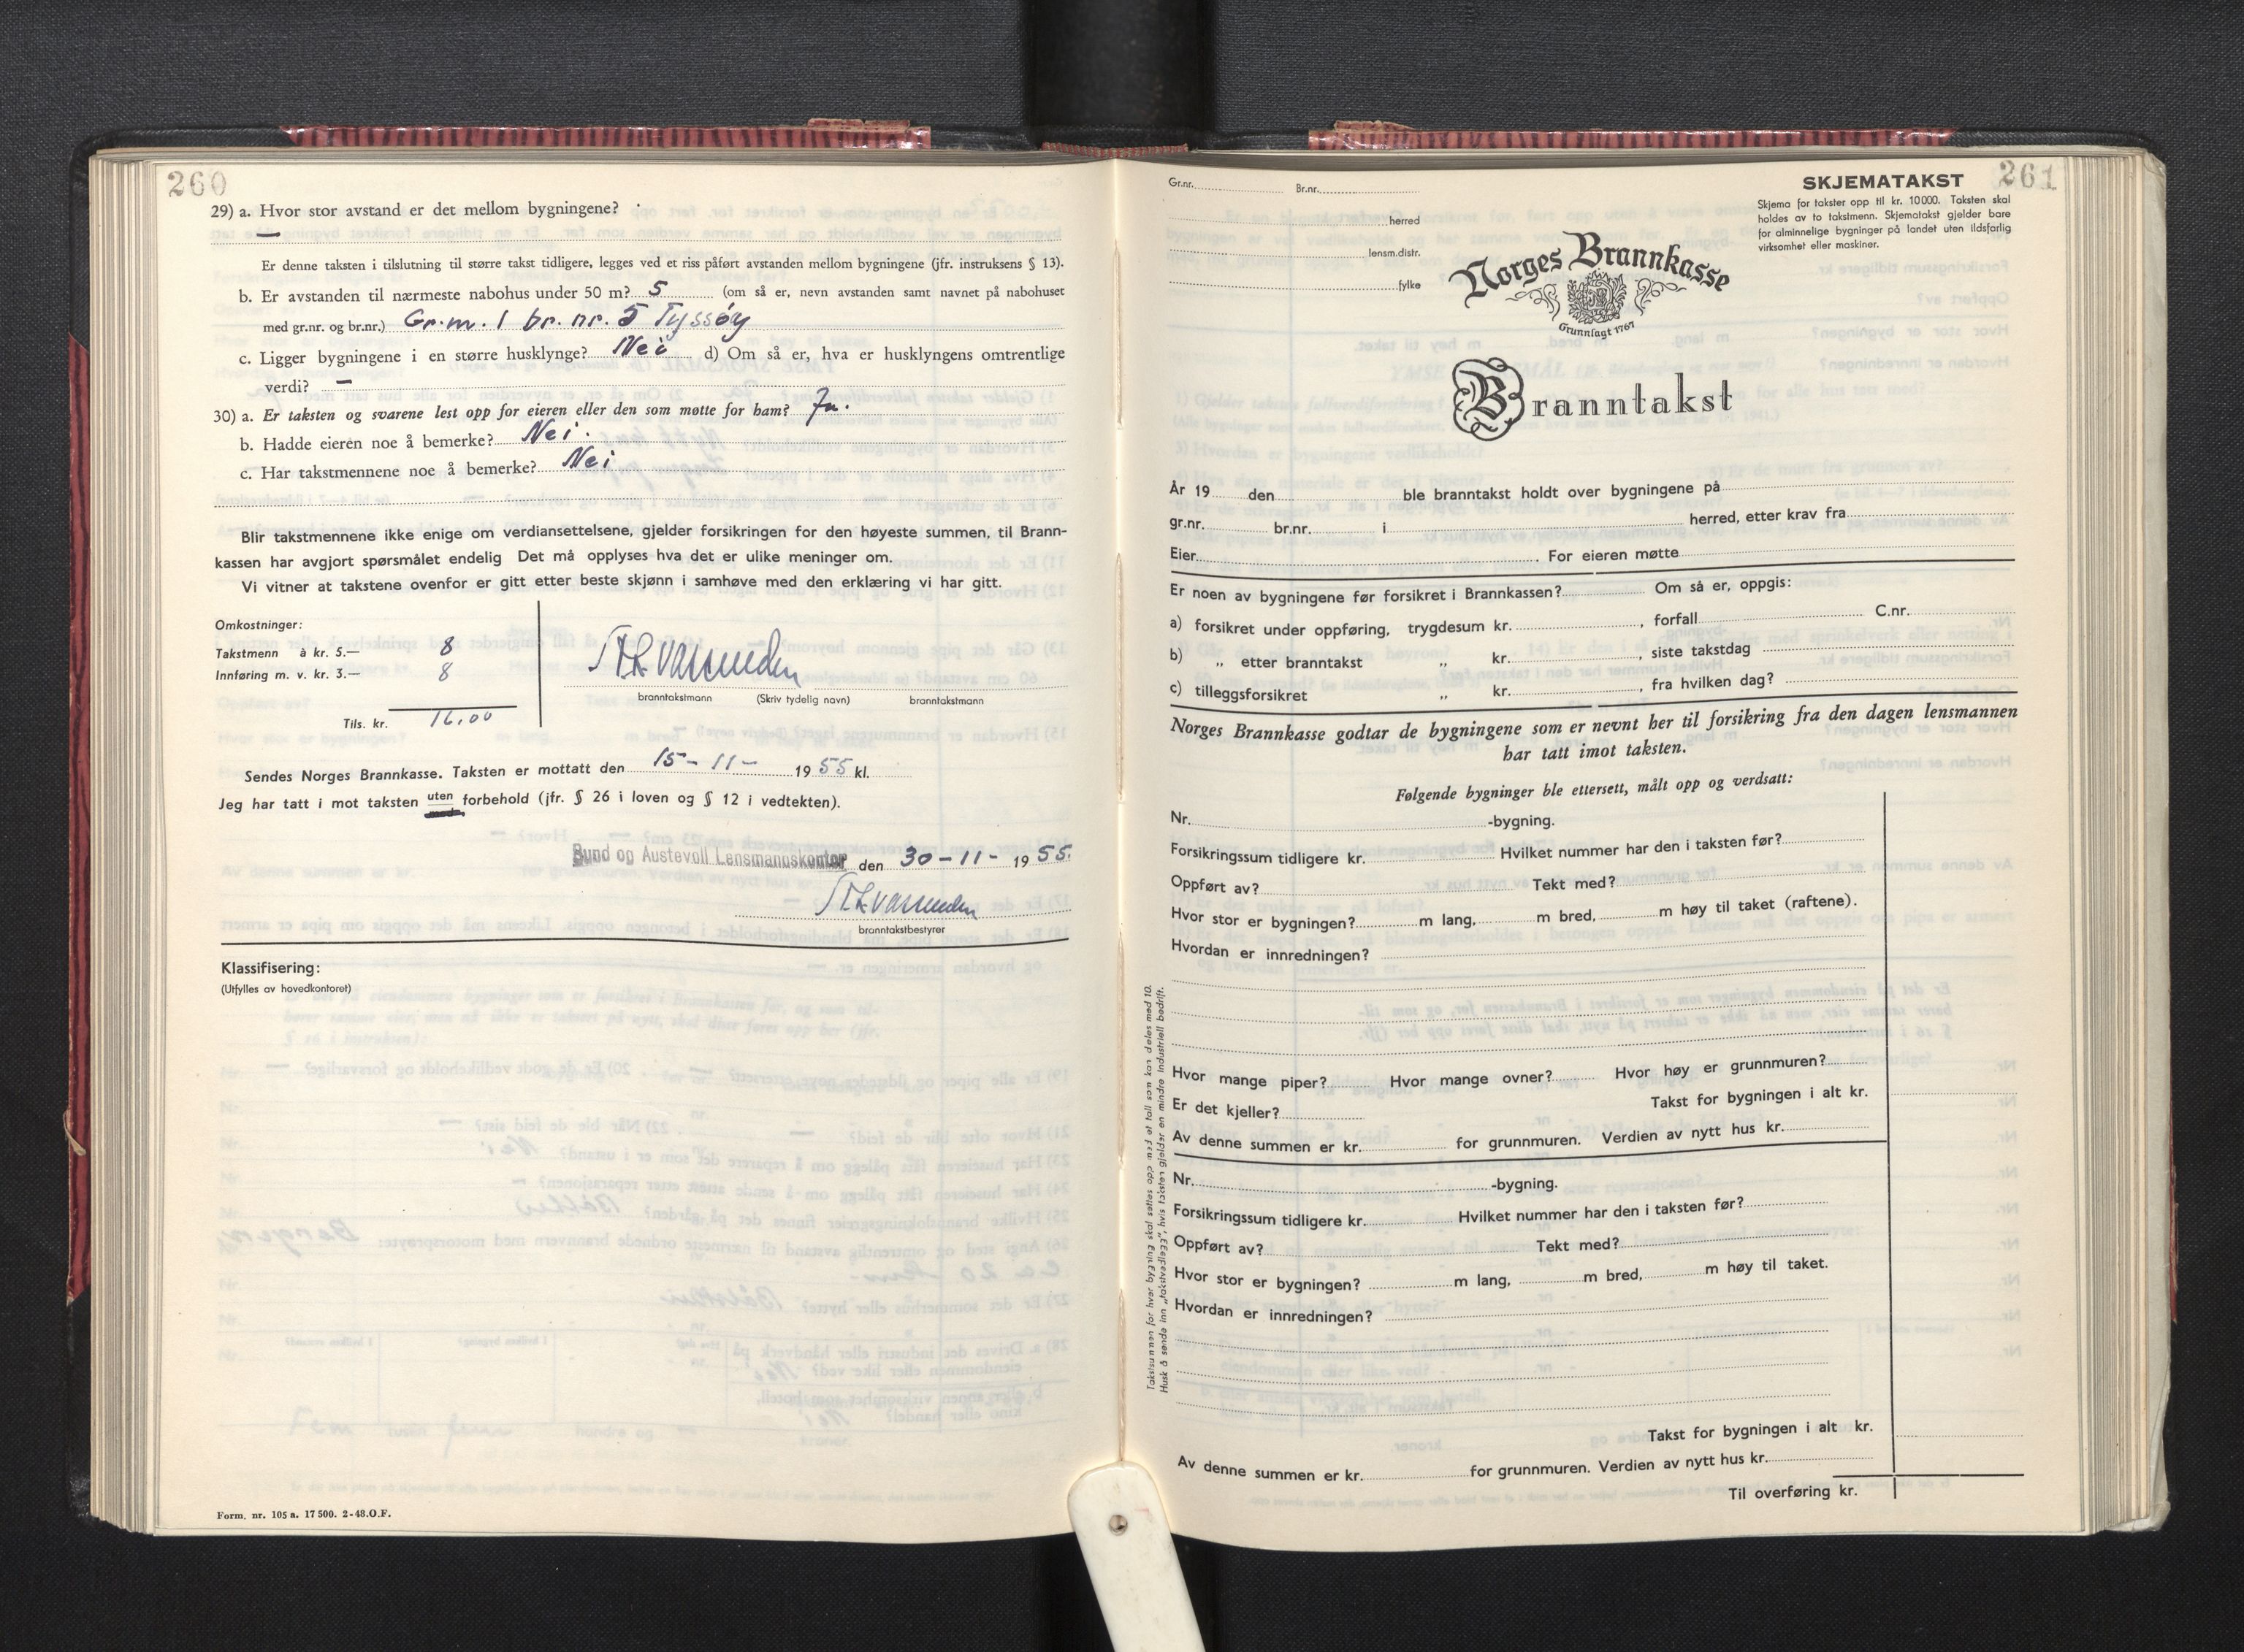 260
29) a. Hvor stor avstand er det mellom bygningene?
—
Er denne taksten i tilslutning til større takst tidligere, legges ved et riss påført avstanden mellom bygningene (jfr. instruksens § 13).
b. Er avstanden til nærmeste nabohus under 50 m? 5 (om så er, nevn avstanden samt navnet på nabohuset
med gr.nr. og br.nr.) Gr.nr. 1 br. nr. 5 Tyssøy
c. Ligger bygningene i en større husklynge? Nei d) Om så er, hva er husklyngens omtrentlige
verdi? —
30) a. Er taksten og svarene lest opp for eieren eller den som møtte for ham? Ja.
b. Hadde eieren noe å bemerke? Nei.
c. Har takstmennene noe å bemerke? Nei
Blir takstmennene ikke enige om verdiansettelsene, gjelder forsikringen for den høyeste summen, til Brann-
kassen har avgjort spørsmålet endelig Det må opplyses hva det er ulike meninger om.
Vi vitner at takstene ovenfor er gitt etter beste skjønn i samhøve med den erklæring vi har gitt.
Omkostninger:
Takstmenn à kr. 5.— 8
Innføring m. v. kr. 3.— 8
Tils. kr. 16.00
branntakstmann (Skriv tydelig navn) branntakstmann
Sendes Norges Brannkasse. Taksten er mottatt den 15-11- 1955 kl.
Jeg har tatt i mot taksten uten forbehold (jfr. § 26 i loven og § 12 i vedtekten).
med
Sund og Austevoll Lensmannskontor den 30-11- 1955.
branntakstbestyrer
Klassifisering:
(Utfylles av hovedkontoret)
Form. nr. 105 a. 17 500. 2-48.O.F.
261
Gr.nr. Br.nr.
herred
lensm.distr.
fylke
SKJEMATAKST
Skjema for takster opp til kr. 10 000. Taksten skal
holdes av to takstmenn. Skjematakst gjelder bare
for alminnelige bygninger på landet uten ildsfarlig
virksomhet eller maskiner.
Norges Brannkasse
Grunnlagt 1767
Branntakst
År 19 den ble branntakst holdt over bygningene på
gr.nr. br.nr. i herred, etter krav fra
Eier. For eieren møtte
Er noen av bygningene før forsikret i Brannkassen? Om så er, oppgis:
a) forsikret under oppføring, trygdesum kr. , forfall C.nr.
b) „ etter branntakst „ kr. , siste takstdag
c) tilleggsforsikret „ kr. , fra hvilken dag?
Norges Brannkasse godtar de bygningene som er nevnt her til forsikring fra den dagen lensmannen
har tatt imot taksten.
Følgende bygninger ble ettersett, målt opp og verdsatt:
Nr. -bygning.
Forsikringssum tidligere kr. Hvilket nummer har den i taksten før?
Oppført av? Tekt med?
Hvor stor er bygningen? m lang, m bred, m høy til taket (raftene).
Hvordan er innredningen?
Hvor mange piper? Hvor mange ovner? Hvor høy er grunnmuren?
Er det kjeller? Takst for bygningen i alt kr.
Av denne summen er kr. for grunnmuren. Verdien av nytt hus kr.
Nr. -bygning.
Forsikringssum tidligere kr. Hvilket nummer har den i taksten før?
Oppført av? Tekt med?
Hvor stor er bygningen? m lang, m bred, m høy til taket.
Hvordan er innredningen?
Takst for bygningen i alt kr.
Av denne summen er kr. for grunnmuren. Verdien av nytt hus kr.
Til overføring kr.
Takstsummen for hver bygning skal settes opp med et tall som kan deles med 10.